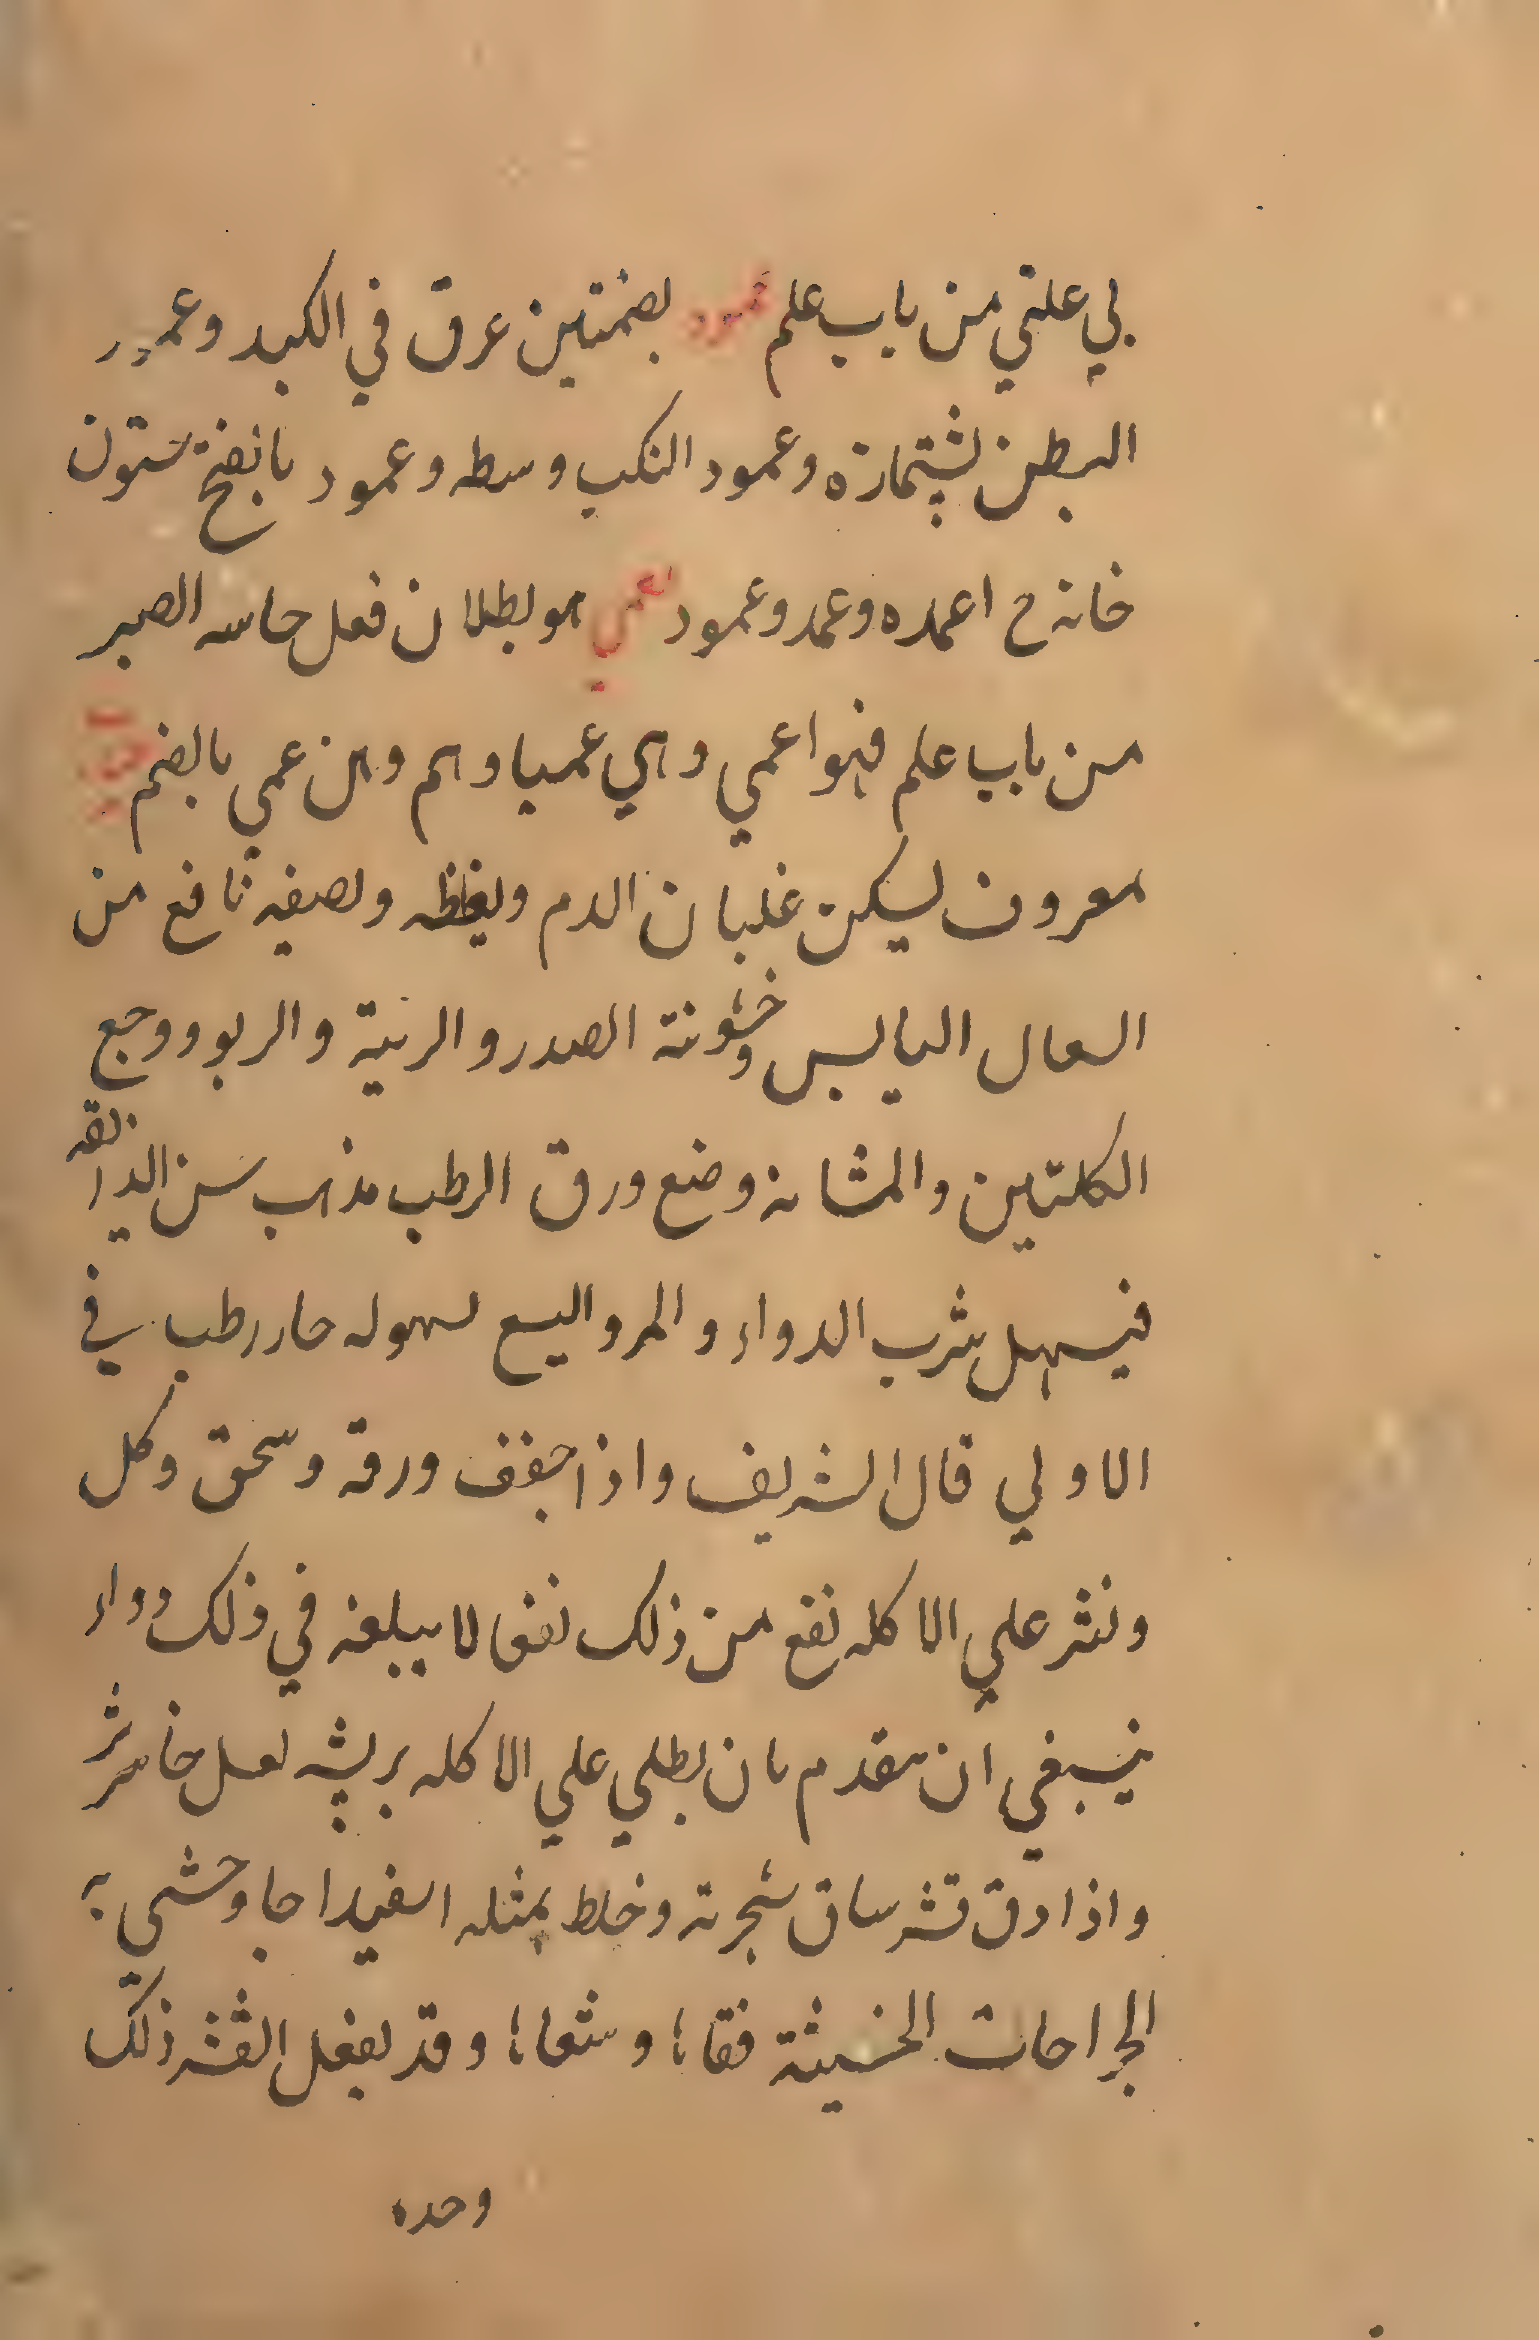 بي علتي من باب علم عمود بضمتين عرق في الكبد وعمود
البطن پشتمازه وعمود النكب وسطه وعمود بانفتح ستون
خانه ح اعمده وعمد وعمود عمي هو بطلان فعل حاسه الصبر
من باب علم فهو اعمي وهي عميا وهم وهن عمي بالضم
معروف يسكن غليان الدم ويغلظه ويصفيه نافع من
السعال اليابس وخشونة الصدر والرئية والربو ووجع
الكليتين والمثانه وضع ورق الرطب مذهب سن الذائقه
فيسهل شرب الدواء والمر واليسع لسهوله حار رطب في
الاولي قال الشريف واذا جفف ورقه وسحق وكل
ونثر علي الاكله نفع من ذلك نفعا لا يبلغه في ذلك دواء
ينبغي ان يتقدم بان يطلي علي الاكله بريشه لعسل خاثر
واذا دق قشر ساق شجرته وخلط بمثله اسفيداجا وحشي به
الجراحات الخبيثة نقاها وشفاها وقد يفعل القشر ذلك
وحده